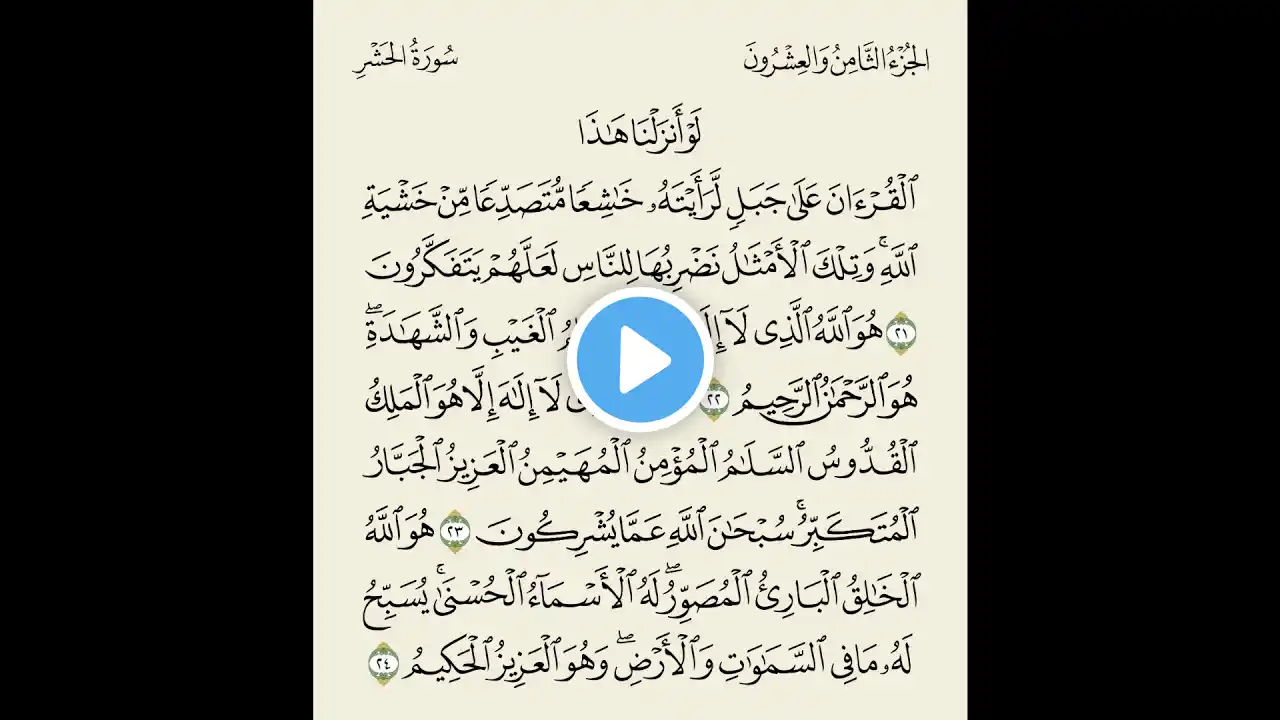 الجُزْءُ الثَّامِنُ وَالعِشْرُونَ
سُورَةُ الحَشْرِ
لَوْ أَنزَلْنَا هَٰذَا
ٱلْقُرْءَانَ عَلَىٰ جَبَلٍ لَّرَأَيْتَهُۥ خَٰشِعًا مُّتَصَدِّعًا مِّنْ خَشْيَةِ
ٱللَّهِۚ وَتِلْكَ ٱلْأَمْثَٰلُ نَضْرِبُهَا لِلنَّاسِ لَعَلَّهُمْ يَتَفَكَّرُونَ
٢١ هُوَ ٱللَّهُ ٱلَّذِى لَآ ٱلْغَيْبِ وَٱلشَّهَٰدَةِۖ
هُوَ ٱلرَّحْمَٰنُ ٱلرَّحِيمُ ٢٢ لَآ إِلَٰهَ إِلَّا هُوَ ٱلْمَلِكُ
ٱلْقُدُّوسُ ٱلسَّلَٰمُ ٱلْمُؤْمِنُ ٱلْمُهَيْمِنُ ٱلْعَزِيزُ ٱلْجَبَّارُ
ٱلْمُتَكَبِّرُۚ سُبْحَٰنَ ٱللَّهِ عَمَّا يُشْرِكُونَ ٢٣ هُوَ ٱللَّهُ
ٱلْخَٰلِقُ ٱلْبَارِئُ ٱلْمُصَوِّرُۖ لَهُ ٱلْأَسْمَآءُ ٱلْحُسْنَىٰۚ يُسَبِّحُ
لَهُۥ مَا فِى ٱلسَّمَٰوَٰتِ وَٱلْأَرْضِۖ وَهُوَ ٱلْعَزِيزُ ٱلْحَكِيمُ ٢٤